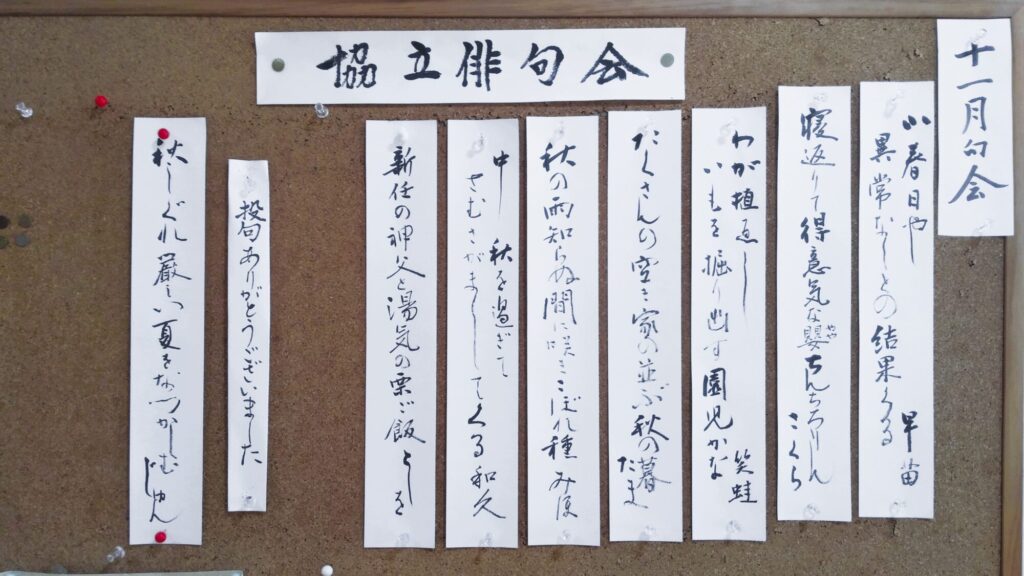 協立俳句会
十一月句会
小春日や
異常なしとの結果くる 早苗
寝返りて得意気な嬰ちんちろりん こくら
やや
わが植ゑし
いもを掘り出す園児かな 笑蛙
たくさんの空き家の並ぶ秋の暮 たま
秋の雨知らぬ間に咲きこぼれ種 み使
中 秋を過ぎて
さむさがましてくる 和久
新任の神父と湯気の栗ご飯 としを
投句ありがとうございました
秋しぐれ厳しい夏をなつかしむ じゅん